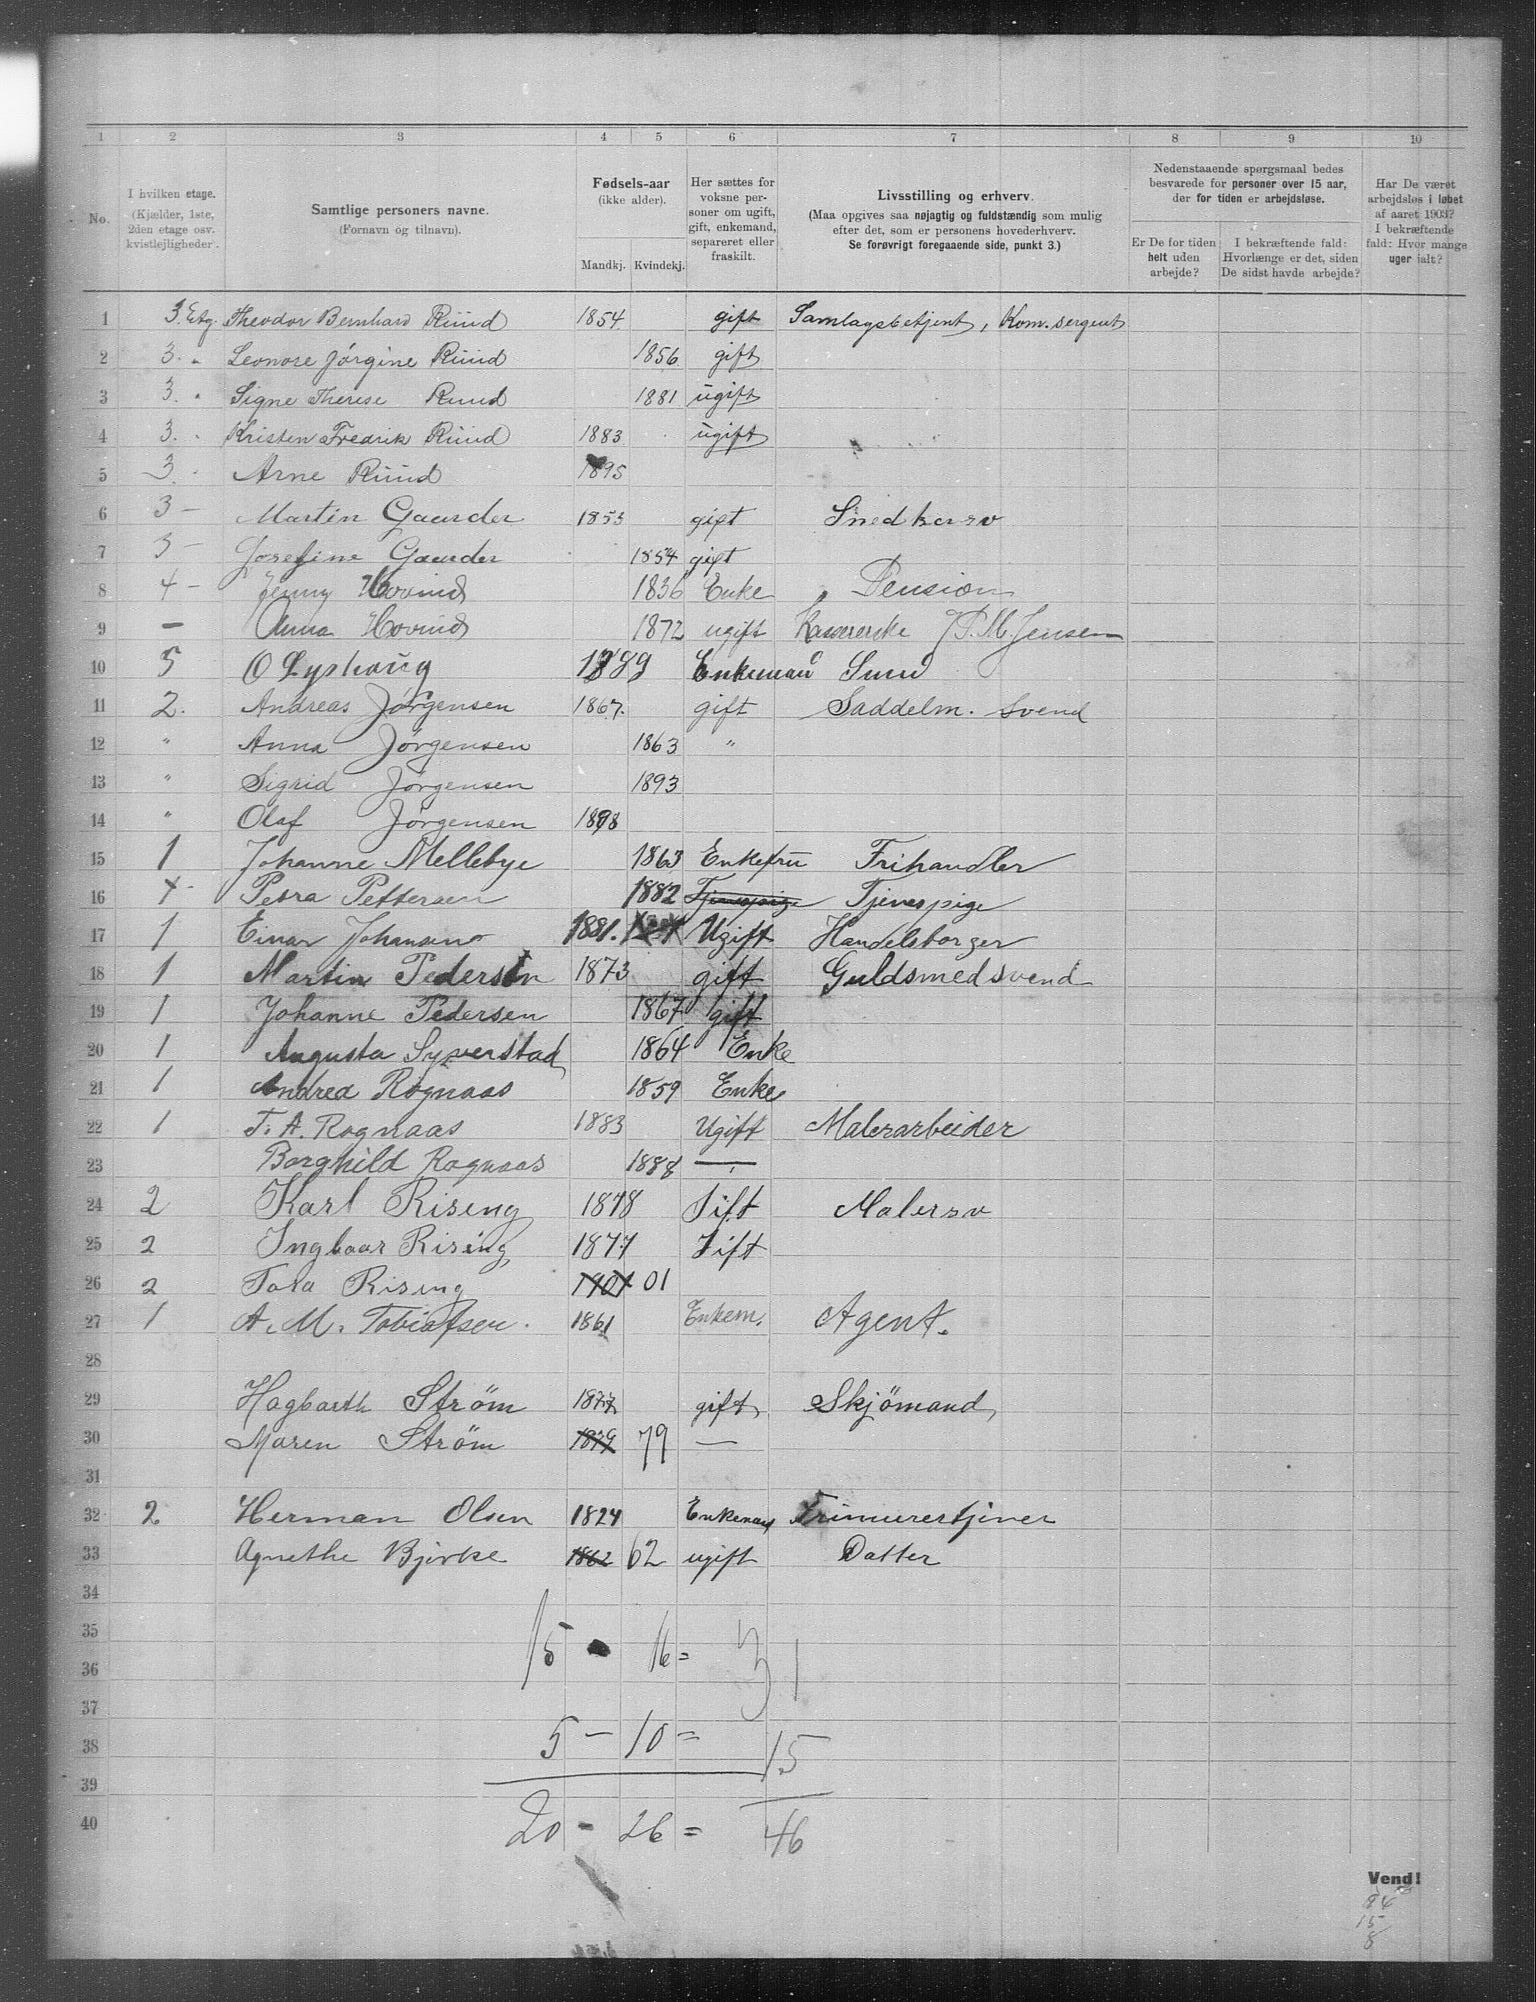 1 2 3 4 5 6 7 8 9 10
No. I hvilken etage. (Kjælder, 1ste, 2den etage osv. kvistlejligheder. Samtlige personers navne. (Fornavn og tilnavn). Fødsels-aar (ikke alder). Mandkj. Kvindekj. Her sættes for voksne personer om ugift, gift, enkemand, separeret eller fraskilt. Livsstilling og erhverv. (Maa opgives saa nøjagtig og fuldstændig som mulig efter det, som er personens hovederhverv. Se forøvrigt foregaaende side, punkt 3.) Nedenstaaende spørgsmaal bedes besvarede for personer over 15 aar, der for tiden er arbejdsløse. Er De for tiden helt uden arbejde? I bekræftende fald: Hvorlænge er det, siden De sidst havde arbejde? Har De været arbejdsløs i løbet af aaret 1903? I bekræftende fald: Hvor mange uger ialt?
1 3. Etg. Theodor Bernhard Ruud 1854 gift Samlagsbetjent, Kom. sergent
2 3. " Leonore Jörgine Ruud 1856 gift
3 3. " Signe Therese Ruud 1881 ugift
4 3. " Kristen Fredrik Ruud 1883 ugift
5 3. Arne Ruud 1895
6 3 — Martin Gaarder 1853 gift Snedkersv
7 3 — Josefine Gaarder 1854 gift
8 4 — Jenny Hovind 1836 Enke Pension
9 — Anna Hovind 1872 ugift Kassererske P. M. Jensen
10 5 O Lyshaug Enkemand Smed
11 2. Andreas Jørgensen 1867. gift Saddelm. svend
12 " Anna Jørgensen 1863 "
13 " Sigrid Jørgensen 1893
14 " Olaf Jørgensen 1898
15 1 Johanne Mellebye 1863 Enkefru Frihandler
16 Petra Pettersen 1882 Tjenespige Tjenespige
17 1 Einar Johansen 1881. Ugift Handelsborger
18 1 Martin Pedersen 1873 gift Guldsmedsvend
19 1 Johanne Pedersen 1867 gift
20 1 Augusta Syverstad 1864 Enke
21 1 Andrea Rognaas 1859 Enke
22 1 T. A. Rognaas 1883 Ugift Malerarbeider
23 Borghild Rognaas 1888 —"—
24 2 Karl Rising 1878 Gift Malersv
25 2 Ingbaar Rising 1877 Gift
26 2 Tora Rising 1901 01
27 1 A. M. Tobiassen. 1861 Enkem. Agent.
28
29 Hagbarth Ström 1877 gift Skjömand
30 Maren Ström 1879 79 —
31
32 2 Herman Olsen 1824 Enkemand Frimurertjener
33 Agnethe Bjerke 1862 62 ugift Datter
34
35
15 - 16 = 31
36
37
5 - 10 = 15
38
39
20 - 26 = 46
40
Vend!
15
8